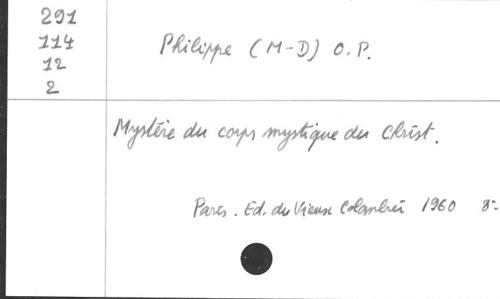 291
114
12
2
Philippe (M-D) O.P.
Mystère du corps mystique du Christ.
Paris. Ed. du Vieux Colombier 1960 8°